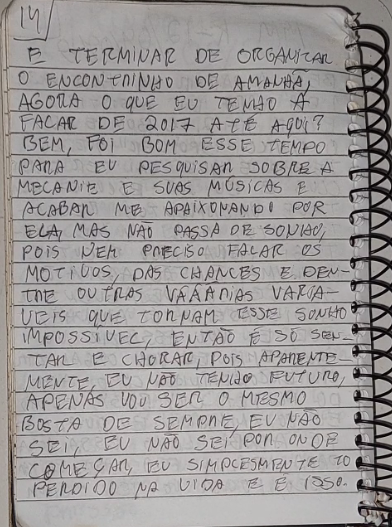 14
E TERMINAR DE ORGANIZAR
O ENCONTRINHO DE AMANHÃ,
AGORA O QUE EU TENHO A
FALAR DE 2017 ATÉ AQUI?
BEM, FOI BOM ESSE TEMPO
PARA EU PESQUISAR SOBRE A
MELANIE E SUAS MÚSICAS E
ACABAR ME APAIXONANDO POR
ELA, MAS NÃO PASSA DE SONHO,
POIS NEM PRECISO FALAR OS
MOTIVOS, DAS CHANCES E DEN-
TRE OUTRAS VÁÁÁRIAS VARIÁ-
VEIS QUE TORNAM ESSE SONHO
IMPOSSÍVEL, ENTÃO É SÓ SEN-
TAR E CHORAR, POIS APARENTE-
MENTE, EU NÃO TENHO FUTURO,
APENAS VOU SER O MESMO
BOSTA DE SEMPRE, EU NÃO
SEI, EU NÃO SEI POR ONDE
COMEÇAR, EU SIMPLESMENTE TO
PERDIDO NA VIDA E É ISSO.